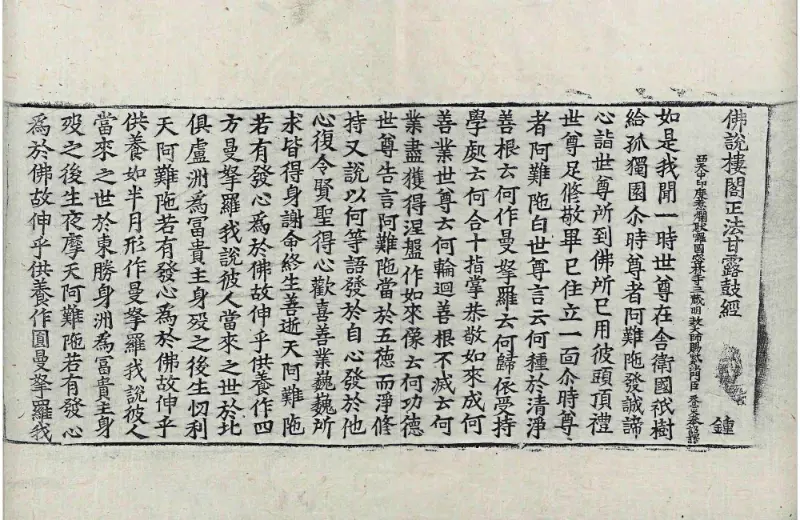 佛說樓閣正法甘露鼓經 鍾
西天中印度惹爛馱囉國密林寺三藏明教大師賜紫沙門臣 奉詔譯
如是我聞一時世尊在舍衛國祇樹
給孤獨園尒時尊者阿難陁發誠諦
心詣世尊所到佛所巳用彼頭頂禮
世尊足修敬畢巳住立一面尒時尊
者阿難陁白世尊言云何種於清淨
善根云何作曼拏羅云何歸依受持
學處云何合十指掌恭敬如來成何
善業世尊云何輪迴善根不滅云何
業盡獲得涅盤作如來像云何功德
世尊告言阿難陁當於五德而淨修
持又說以何等語發於自心發於他
心復令賢聖得心歡喜善業巍巍所
求皆得身謝命終生善逝天阿難陁
若有發心為於佛故伸乎供養作四
方曼拏羅我說彼人當來之世於北
俱盧洲為冨貴主身歿之後生忉利
天阿難陁若有發心為於佛故伸乎
供養如半月形作曼拏羅我說彼人
當來之世於東勝身洲為冨貴主身
歿之後生夜摩天阿難陁若有發心
為於佛故伸乎供養作圓曼拏羅我